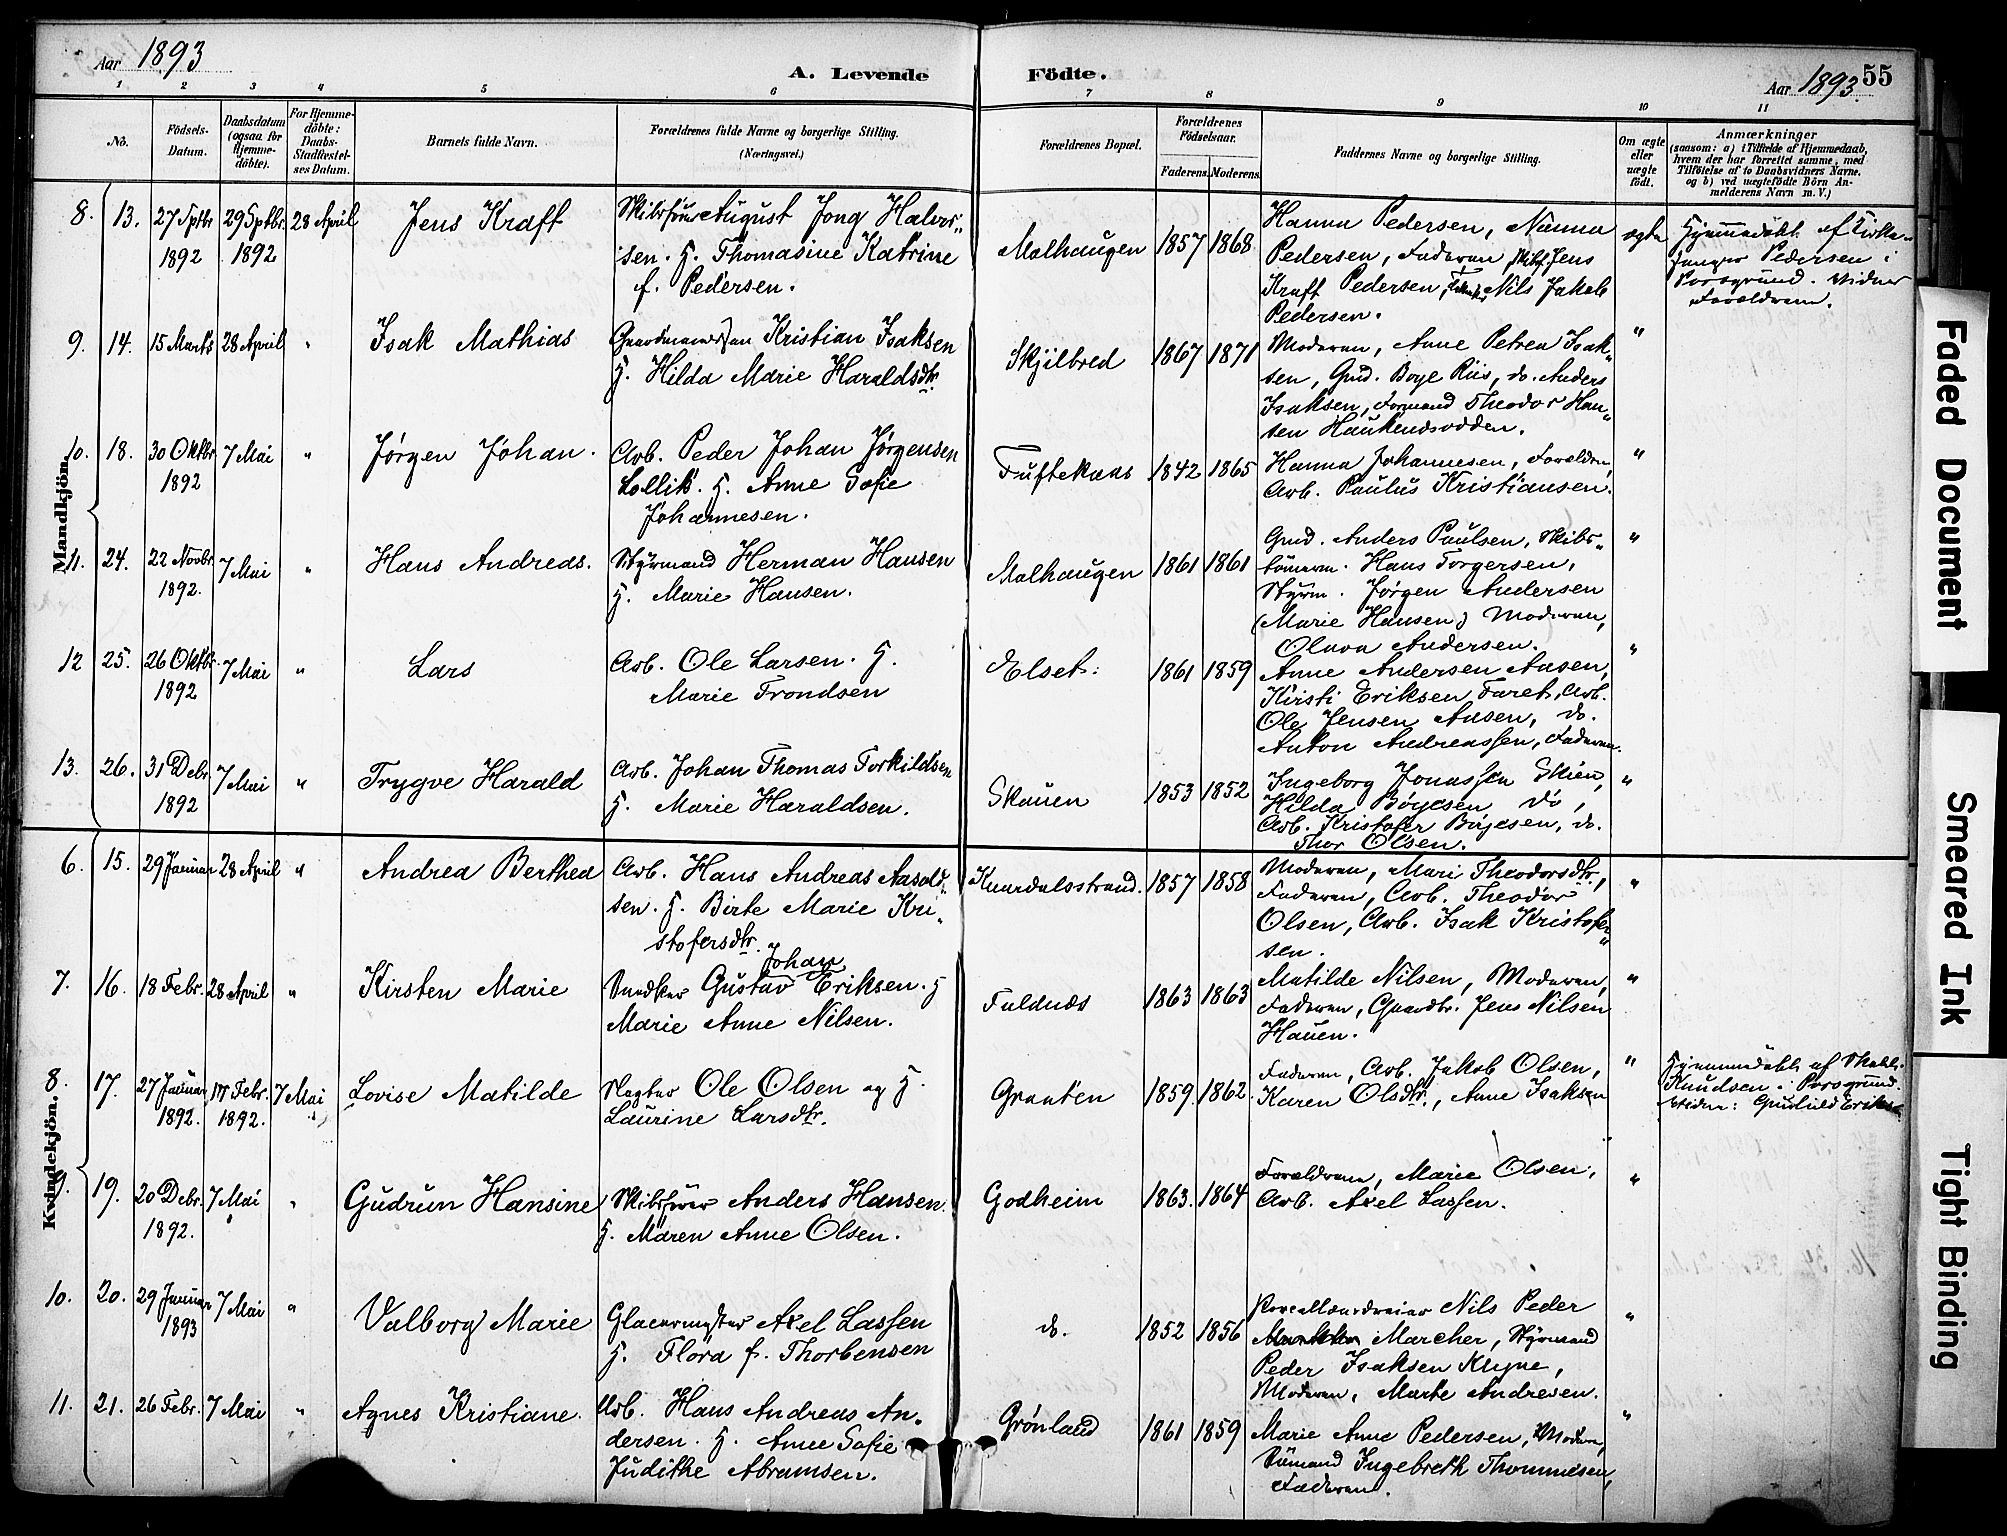 Aar 1893
A. Levende Födte.
Aar 1893. 55
1 2 3 4 5 6 7 8 9 10 11
No.
Födsels-Datum.
Daabsdatum (ogsaa for Hjemme-döbte).
For Hjemme-döbte: Daabs-Stadfæstel-ses Datum.
Barnets fulde Navn.
Forældrenes fulde Navne og borgerlige Stilling. (Næringsvei.)
Forældrenes Bopæl.
Forældrenes Födselsaar.
Faderens. Moderens.
Faddernes Navne og borgerlige Stilling.
Om ægte eller uægte födt.
Anmærkninger
(saasom: a) i Tilfælde af Hjemmedaab,
hvem der har forrettet samme, med
Tilföielse af to Daabsvidners Navne.
og b) ved uægtefödte Börn An-
melderens Navn m. V.)
Mandkjön.
8. 13. 27 Sptbr 1892 29 Sptbr. 1892 28 April Jens Kraft
Skibsfører August Jong Halvor-
sen. H. Thomasine Katrine
f. Pedersen.
Malhaugen 1857 1868
Hanna Pedersen, Nanna
Pedersen, Faderen, Skibsf. Jens
Kraft Pedersen, Nils Jakob
Pedersen.
ægte
Hjemmedøbt af Kirke-
sanger Pedersen i
Porsgrund. Vidner
Forældrene.
9. 14. 15 Marts 28 April " Isak Mathias
Gaardmandssøn Kristian Isaksen
H. Hilda Marie Haraldsdtr.
Skjilbred 1867 1871
Moderen, Anne Petrea Isak-
sen, Gmd. Boye Riis, do. Anders
Isaksen, Formand Theodor Han-
sen Haukenesodden.
"
10. 18. 30 Oktbr 1892 7 Mai " Jørgen Johan.
Arb. Peder Johan Jørgensen
Lollik. H. Anne Sofie
Johannesen.
Tuftekaas 1842 1865
Hanna Johannesen, Forældrene,
Arb. Paulus Kristiansen.
"
11. 24. 22 Novbr. 1892. 7 Mai " Hans Andreas.
Styrmand Herman Hansen
H. Marie Hansen.
Malhaugen 1861 1861
Gmd. Anders Paulsen, Skibs-
tømerm. Hans Torgersen,
Styrm. Jørgen Andersen
(Marie Hansen) Moderen,
Olava Andersen.
"
12 25. 26 Oktbr. 1892 7 Mai " Lars
Arb. Ole Larsen. H.
Marie Trondsen
Elset. 1861 1859
Anne Andersen Aasen,
Kirsti Eriksen Faret, Arb.
Ole Jensen Aasen, do.
Anton Andreassen, Faderen.
"
13. 26. 31 Debr. 1892 7 Mai " Trygve Harald
Arb. Johan Thomas Torkildsen
H. Marie Haraldsen.
Skauen 1853 1852
Ingeborg Jonassen Skien,
Hilda Bøyesen do,
Arb. Kristofer Bøyesen, do.
Thor Olsen.
"
Kvindekjön.
6. 15. 29 Januar 28 April " Andrea Berthea
Arb. Hans Andreas Aasold-
sen. H. Birte Marie Kri-
stofersdtr.
Knardalsstrand. 1857 1858
Moderen, Mari Theodorsdtr,
Faderen, Arb. Theodor
Olsen, Arb. Isak Kristofer-
sen.
"
7. 16. 18 Febr. 28 April " Kirsten Marie
Johan
Snedker Gustav Eriksen. H
Marie Anne Nilsen.
Faldnæs 1863 1863
Matilde Nilsen, Moderen,
Faderen, Gaardbr. Jens Nilsen
Hauen.
"
8. 17. 27 Januar 1892. 17 Febr. 1892. 7 Mai Lovise Matilde
Slagter Ole Olsen og H.
Laurine Larsdtr.
Graaten 1859. 1862
Faderen, Arb. Jakob Olsen,
Karen Olsdtr., Anne Isaksen
"
Hjemmedøbt af
Knudsen i Porsgrund.
Vidne: Gunhild Eriksen
9. 19. 20 Debr. 1892. 7 Mai " Gudrun Hansine
Skibsfører Anders Hansen.
H. Maren Anne Olsen.
Godheim 1863. 1864
Forældrene, Marie Olsen,
Arb. Axel Lassen.
"
10. 20. 29 Januar 1893 7 Mai " Valborg Marie
Glasermester Axel Lassen
H. Flora f. Thorbensen
do. 1852 1856
Porcellænsdreier Nils Peder
Marcher, Styrmand
Peder Isaksen Klyve,
Moderen, Marte Andresen.
"
11. 21. 26 Febr. 7 Mai " Agnes Kristiane.
Arb. Hans Andreas An-
dersen. H. Anne Sofie
Judithe Abramsen.
Grønland 1861 1859
Marie Anne Pedersen, Moderen,
Ingebreth Thommesen,
Faderen.
"
Faded Document
Smeared Ink
Tight Binding